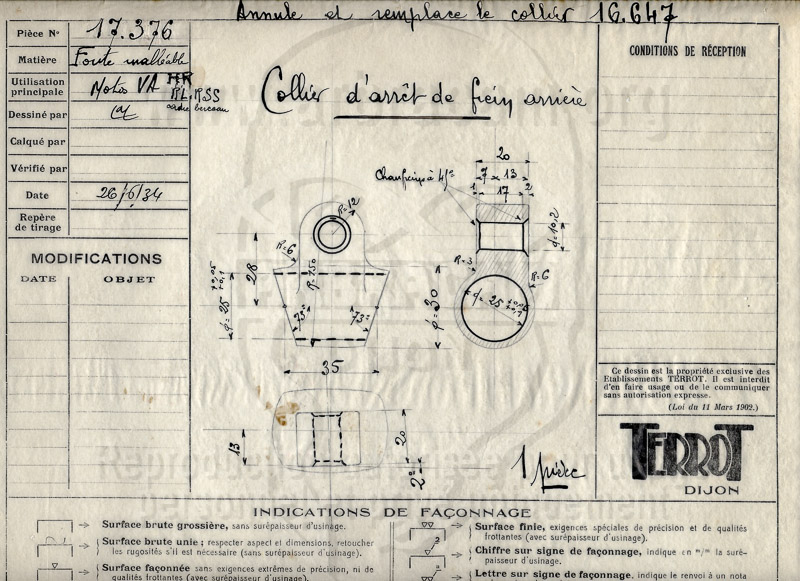 Annule et remplace le collier 16.647
Pièce No 17.376
Matière Fonte malléable
Utilisation principale Motos VA HR
RL.RSS
cadre berceau
Dessiné par
Calqué par
Vérifié par
Date 26/6/34
Repère de tirage
MODIFICATIONS
DATE OBJET
Collier d'arrêt de frein arrière
CONDITIONS DE RÉCEPTION
20
7 x 13
Chanfreins à 45°
1 17 2
R=12
R=6
28
ϕ=25 +0,05 +0,1
73° 73°
35
ϕ=10,2
R=3
R=6
ϕ=30
ϕ=25 +0,05 +0,1
13
20
2°
1 pièce
Ce dessin est la propriété exclusive des
Etablissements TERROT. Il est interdit
d'en faire usage ou de le communiquer
sans autorisation expresse.
(Loi du 11 Mars 1902.)
TERROT
DIJON
INDICATIONS DE FAÇONNAGE
Surface brute grossière, sans surépaisseur d'usinage.
Surface brute unie; respecter aspect et dimensions, retoucher
les rugosités s'il est nécessaire (sans surépaisseur d'usinage).
Surface façonnée sans exigences extrêmes de précision, ni de
qualités frottantes (avec surépaisseur d'usinage).
Surface finie, exigences spéciales de précision et de qualités
frottantes (avec surépaisseur d'usinage).
Chiffre sur signe de façonnage, indique en m/m la suré-
paisseur d'usinage.
Lettre sur signe de façonnage, indique le renvoi à un nota